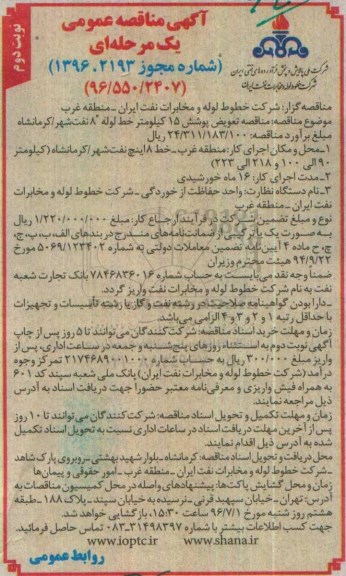 آگهی مناقصه عمومی
یک مرحله‌ای
(شماره مجوز ۱۳۹۶.۲۱۹۳)
(۹۶/۵۵۰/۲۴۰۷)
نوبت دوم
شرکت ملی پالایش و پخش فرآورده‌های نفتی ایران
شرکت خطوط لوله و مخابرات نفت ایران
مناقصه گزار: شرکت خطوط لوله و مخابرات نفت ایران ـ منطقه غرب
موضوع مناقصه: مناقصه تعویض پوشش ۱۵ کیلومتر خط لوله "۸ نفت‌شهر/کرمانشاه
مبلغ برآورد مناقصه: ۲۴/۳۱۱/۱۸۳/۱۰۰ ریال
۱ـ محل و مکان اجرای کار: منطقه غرب ـ خط ۸ اینچ نفت‌شهر/کرمانشاه (کیلومتر
۹۰ الی ۱۰۰ و ۲۱۸ الی ۲۲۳)
۲ـ مدت اجرای کار: ۱۶ ماه خورشیدی
۳ـ نام دستگاه نظارت: واحد حفاظت از خوردگی ـ شرکت خطوط لوله و مخابرات
نفت ایران ـ منطقه غرب
نوع و مبلغ تضمین شرکت در فرآیند ارجاع کار: مبلغ ۱/۲۲۰/۰۰۰/۰۰۰ ریال
به صورت یک یا ترکیبی از ضمانت‌نامه‌های مندرج در بندهای الف، ب، پ، ج،
چ، ح ماده ۴ آیین‌نامه تضمین معاملات دولتی به شماره ۵۰۶۹/۱۲۳۴۰۲ مورخ
۹۴/۹/۲۲ هیئت محترم وزیران
ضمناً وجه نقد می‌بایست به حساب شماره ۷۸۴۶۸۳۶۰۱۶ بانک تجارت شعبه
نفت به نام شرکت خطوط لوله و مخابرات نفت واریز گردد.
ـ دارا بودن گواهینامه صلاحیت در رشته نفت و گاز یا رشته تأسیسات و تجهیزات
با حداقل رتبه ۱ و ۲ و ۳ و ۴ الزامی می‌باشد.
زمان و مهلت خرید اسناد مناقصه: شرکت‌کنندگان می‌توانند تا ۵ روز پس از چاپ
آگهی نوبت دوم به استثناء روزهای پنج‌شنبه و جمعه در ساعت اداری، پس از
واریز مبلغ ۳۰۰/۰۰۰ ریال به حساب شماره ۲۱۷۴۶۸۹۰۰۱۰۰۰ تمرکز وجوه
درآمد (شرکت خطوط لوله و مخابرات نفت ایران) بانک ملی شعبه سپند کد ۶۰۱
به همراه فیش واریزی و معرفی‌نامه معتبر حضوراً جهت دریافت اسناد به آدرس
ذیل مراجعه نمایند.
زمان و مهلت تکمیل و تحویل اسناد مناقصه: شرکت‌کنندگان می‌توانند تا ۱۰ روز
پس از آخرین مهلت دریافت اسناد در ساعات اداری نسبت به تحویل اسناد تکمیل
شده به آدرس ذیل اقدام نمایند.
محل دریافت و تحویل اسناد مناقصه: کرمانشاه ـ بلوار شهید بهشتی ـ روبروی پارک شاهد
ـ شرکت خطوط لوله و مخابرات نفت ایران ـ منطقه غرب ـ امور حقوقی و پیمان‌ها
زمان و محل گشایش پاکت‌ها: پیشنهادهای واصله در محل کمیسیون مناقصات به
آدرس: تهران ـ خیابان سپهبد قرنی ـ نرسیده به خیابان سپند ـ پلاک ۱۸۸ ـ طبقه
هشتم روز شنبه مورخ ۹۶/۷/۱ ساعت ۱۵:۳۰، بازگشایی خواهد شد.
جهت کسب اطلاعات بیشتر با شماره ۳۱۴۹۸۳۹۷-۰۸۳ تماس حاصل فرمائید.
www.shana.ir www.ioptc.ir
روابط عمومی